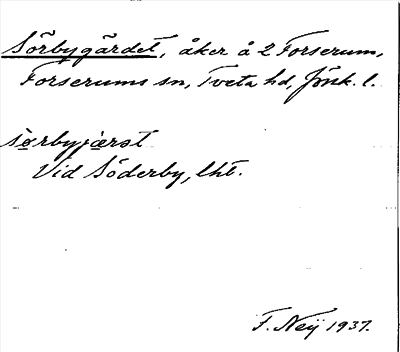 Sörbygärdet, åker å 2 Forserum,
Forserums sn, Tveta hd, Jönk. l.
sǫ̀rbyjæ̀rst
Vid Söderby, lht.
F. Neij 1937.